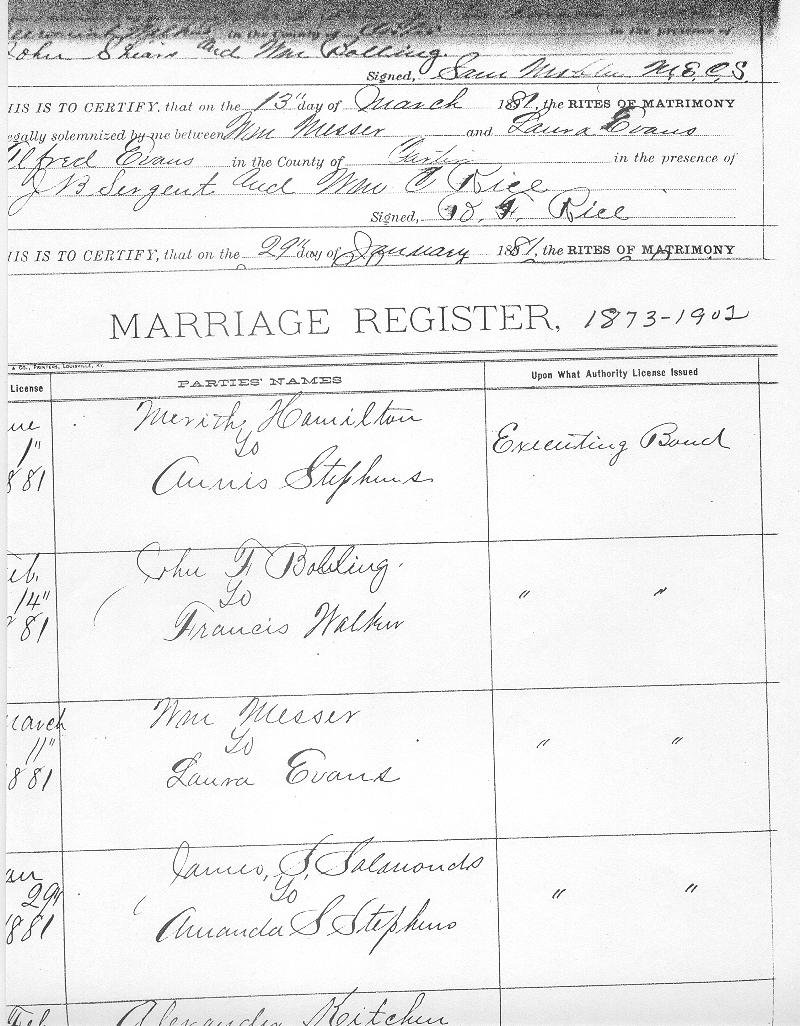 in the County of in the presence of
John Shiars and Wm Bolling
Signed, Sam M.E.C.S.
HIS IS TO CERTIFY, that on the 13" day of March 1881, the RITES OF MATRIMONY
egally solemnized by me between Wm Messer and Laura Evans
Alfred Evans in the County of in the presence of
J B Sergent and Wm C Rice
Signed, W. F. Rice
HIS IS TO CERTIFY, that on the 29" day of January 1881, the RITES OF MATRIMONY
MARRIAGE REGISTER, 1873-1902
& CO., PRINTERS, LOUISVILLE, KY.
License PARTIES' NAMES Upon What Authority License Issued
une Merith Hamilton
1" To Executing Bond
881 Annis Stephens
eb. John F Bolling
14" To " "
81 Francis Walker
March Wm Messer
11" To " "
881 Laura Evans
an James S. Salmonds
29" To " "
1881 Amanda S Stephens
Feb Alexander Kitchen